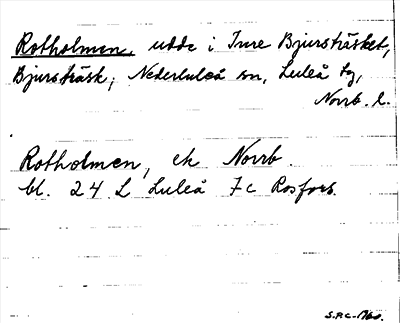 Rotholmen, udde i Inre Bjursträsket,
Bjursträsk, Nederluleå sn, Luleå tg,
Norrb. l.
Rotholmen, ek Norrb.
bl. 24 L Luleå 7c Rosfors.